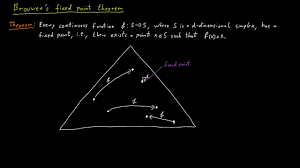 Brouwer's fixed point theorem
Theorem: Every continuous function f: S→S, where S is a d-dimensional simplex, has a
fixed point, i.e., there exists a point x∈S such that f(x)=x.
f
fixed point
f
f